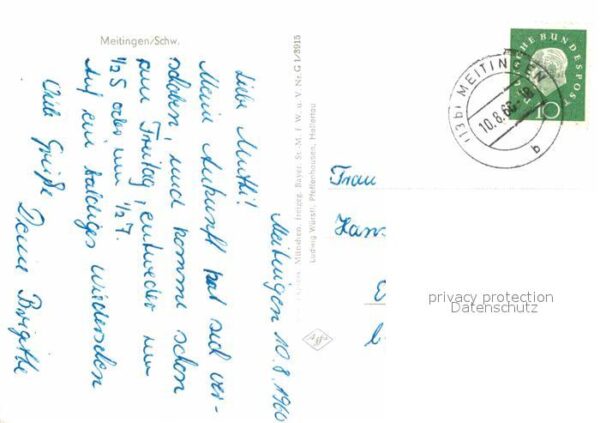 Meitingen/Schw.
Meitingen 10.8.1960
Liebe Mutti!
Meine Ankunft hat sich ver-
schoben, und komme schon
am Freitag, entweder um
1/2 5 oder um 1/2 7.
Auf ein baldiges Wiedersehen
Viele Grüße
Deine Brigitte
München, Freigeg. Bayer. St. M. f. W. u. V. Nr. G 1/3915
Ludwig Würstl, Pfeffenhausen, Hallertau
Frau
Hans
privacy protection
Datenschutz
(13b) MEITINGEN
10.8.60
b
DEUTSCHE BUNDESPOST
10